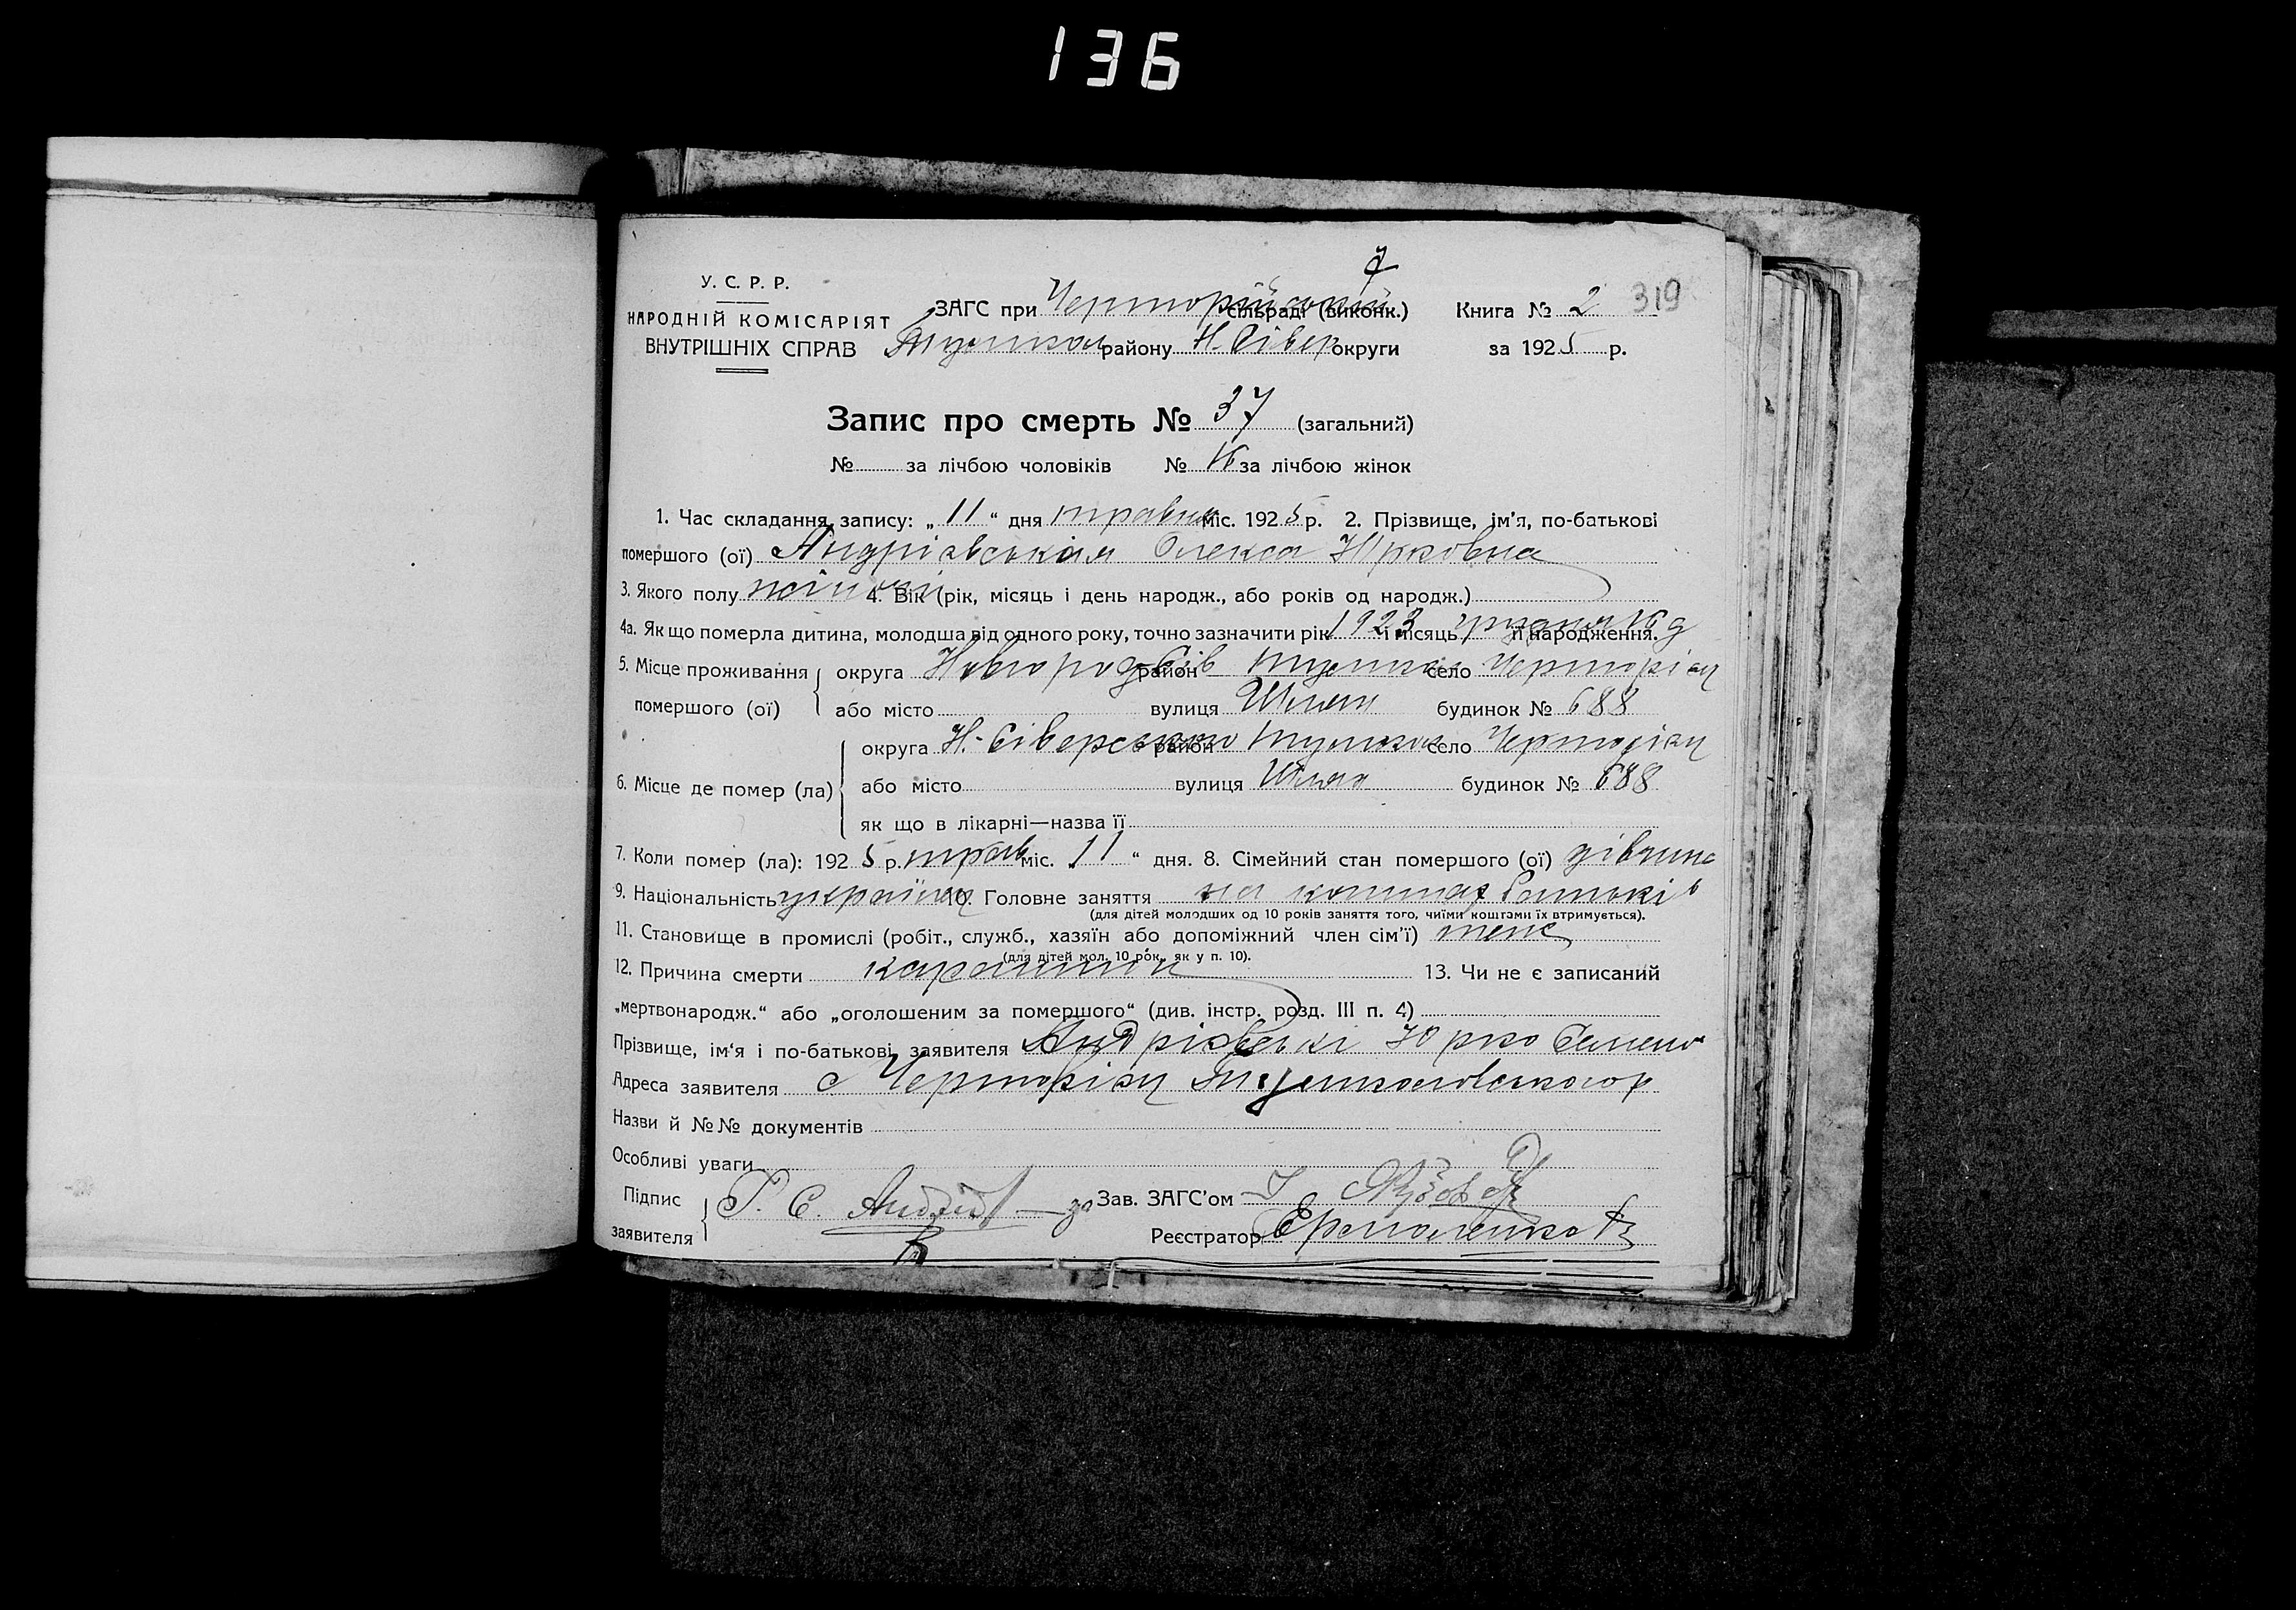 136
У. С. Р. Р.
НАРОДНІЙ КОМІСАРІЯТ
ВНУТРІШНІХ СПРАВ
ЗАГС при сільраді (виконк.)
району Н. Сівер округи
Книга № 2 319
за 1925 р.
Запис про смерть № 37 (загальний)
№ за лічбою чоловіків № 16 за лічбою жінок
1. Час складання запису: „ 11 “ дня травня міс. 1925 р. 2. Прізвище, ім'я, по-батькові
помершого (ої) Олекса Юрковна
3. Якого полу жіночі 4. Вік (рік, місяць і день народж., або років од народж.)
4а. Як що померла дитина, молодша від одного року, точно зазначити рік 1923 і місяць грудня 16 д її народження.
5. Місце проживання округа Новгород-Сів район село Черторіги
помершого (ої) або місто вулиця Шлях будинок № 688
округа Н-Сіверського район село Черторіги
6. Місце де помер (ла) або місто вулиця Шлях будинок № 688
як що в лікарні—назва її
7. Коли помер (ла): 1925 р. трав міс. 11 “ дня. 8. Сімейний стан помершого (ої) дівчина
9. Національність 10. Головне заняття на коштах батьків
(для дітей молодших од 10 років заняття того, чиїми коштами їх втримується).
11. Становище в промислі (робіт., служб., хазяїн або допоміжний член сім'ї) теж
(для дітей мол. 10 рок. як у п. 10).
12. Причина смерти 13. Чи не є записаний
„мертвонародж.“ або „оголошеним за помершого“ (див. інстр. розд. III п. 4)
Прізвище, ім'я і по-батькові заявителя Андрієвські Юрко Семено
Адреса заявителя с Черторіги
Назви й №№ документів
Особливі уваги
Підпис
заявителя
за Зав. ЗАГС'ом
Реєстратор Єрмоленко